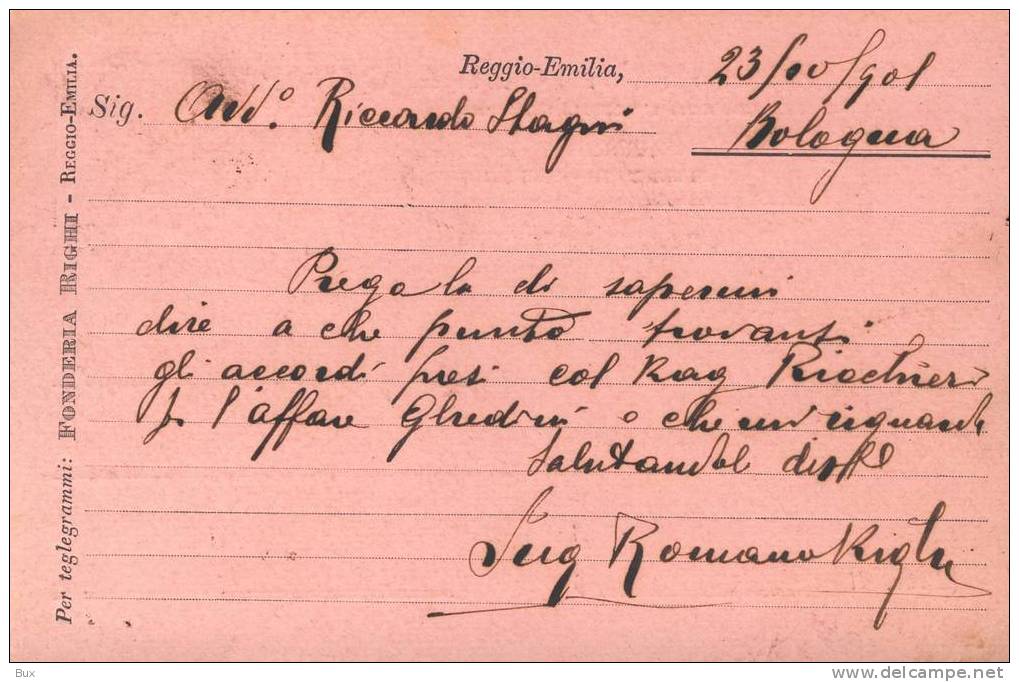 Reggio-Emilia, 23/10/901
Sig. Avv.º Riccardo Stagni
Bologna
Pregola di sapermi
dire a che punto trovansi
gli accordi presi col Rag
l'affare Ghedini e che mi riguarda
Salutandol
Ing Romano Righi
Per teglegrammi: FONDERIA RIGHI - REGGIO-EMILIA.
Bux
www.delcampe.net